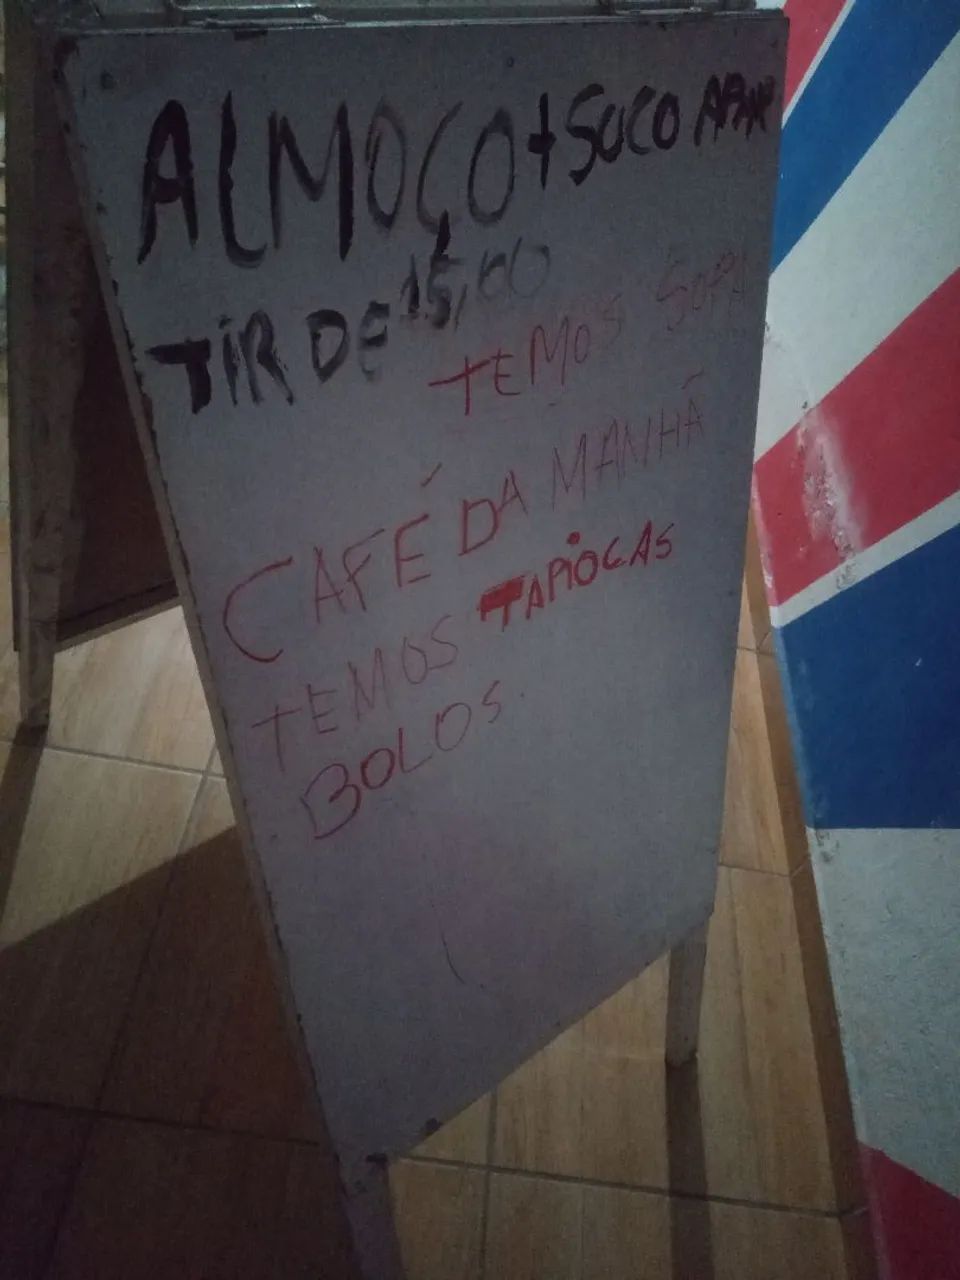 ALMOÇO + SUCO APAR
TIR DE 15,00
TEMOS SOPA
CAFÉ DA MANHÃ
TEMOS TAPIOCAS
BOLOS